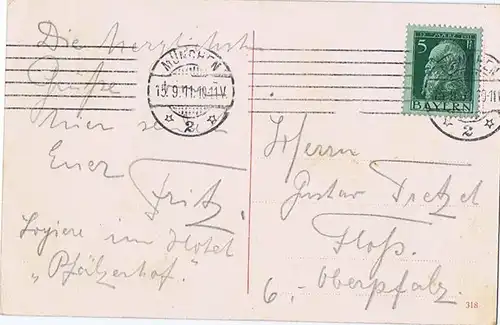 Die herzlichsten
Grüße
hier
Euer
Fritz.
Logiere im Hotel
„Pfälzerhof."
MÜNCHEN
15.9.11.10-11V.
2
5
BAYERN
2
Herrn
Gustav Pretzel
Floß.
Oberpfalz.
6.-
318